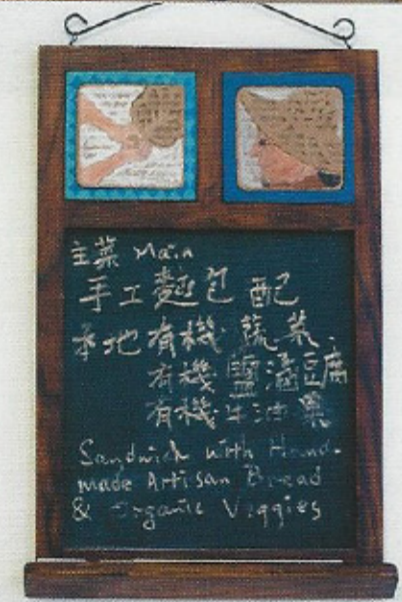 主菜 Main
手工麵包 配
本地有機 蔬菜
有機鹽滷豆腐
有機牛油果
Sandwich with Hand-
made Artisan Bread
& Organic Veggies